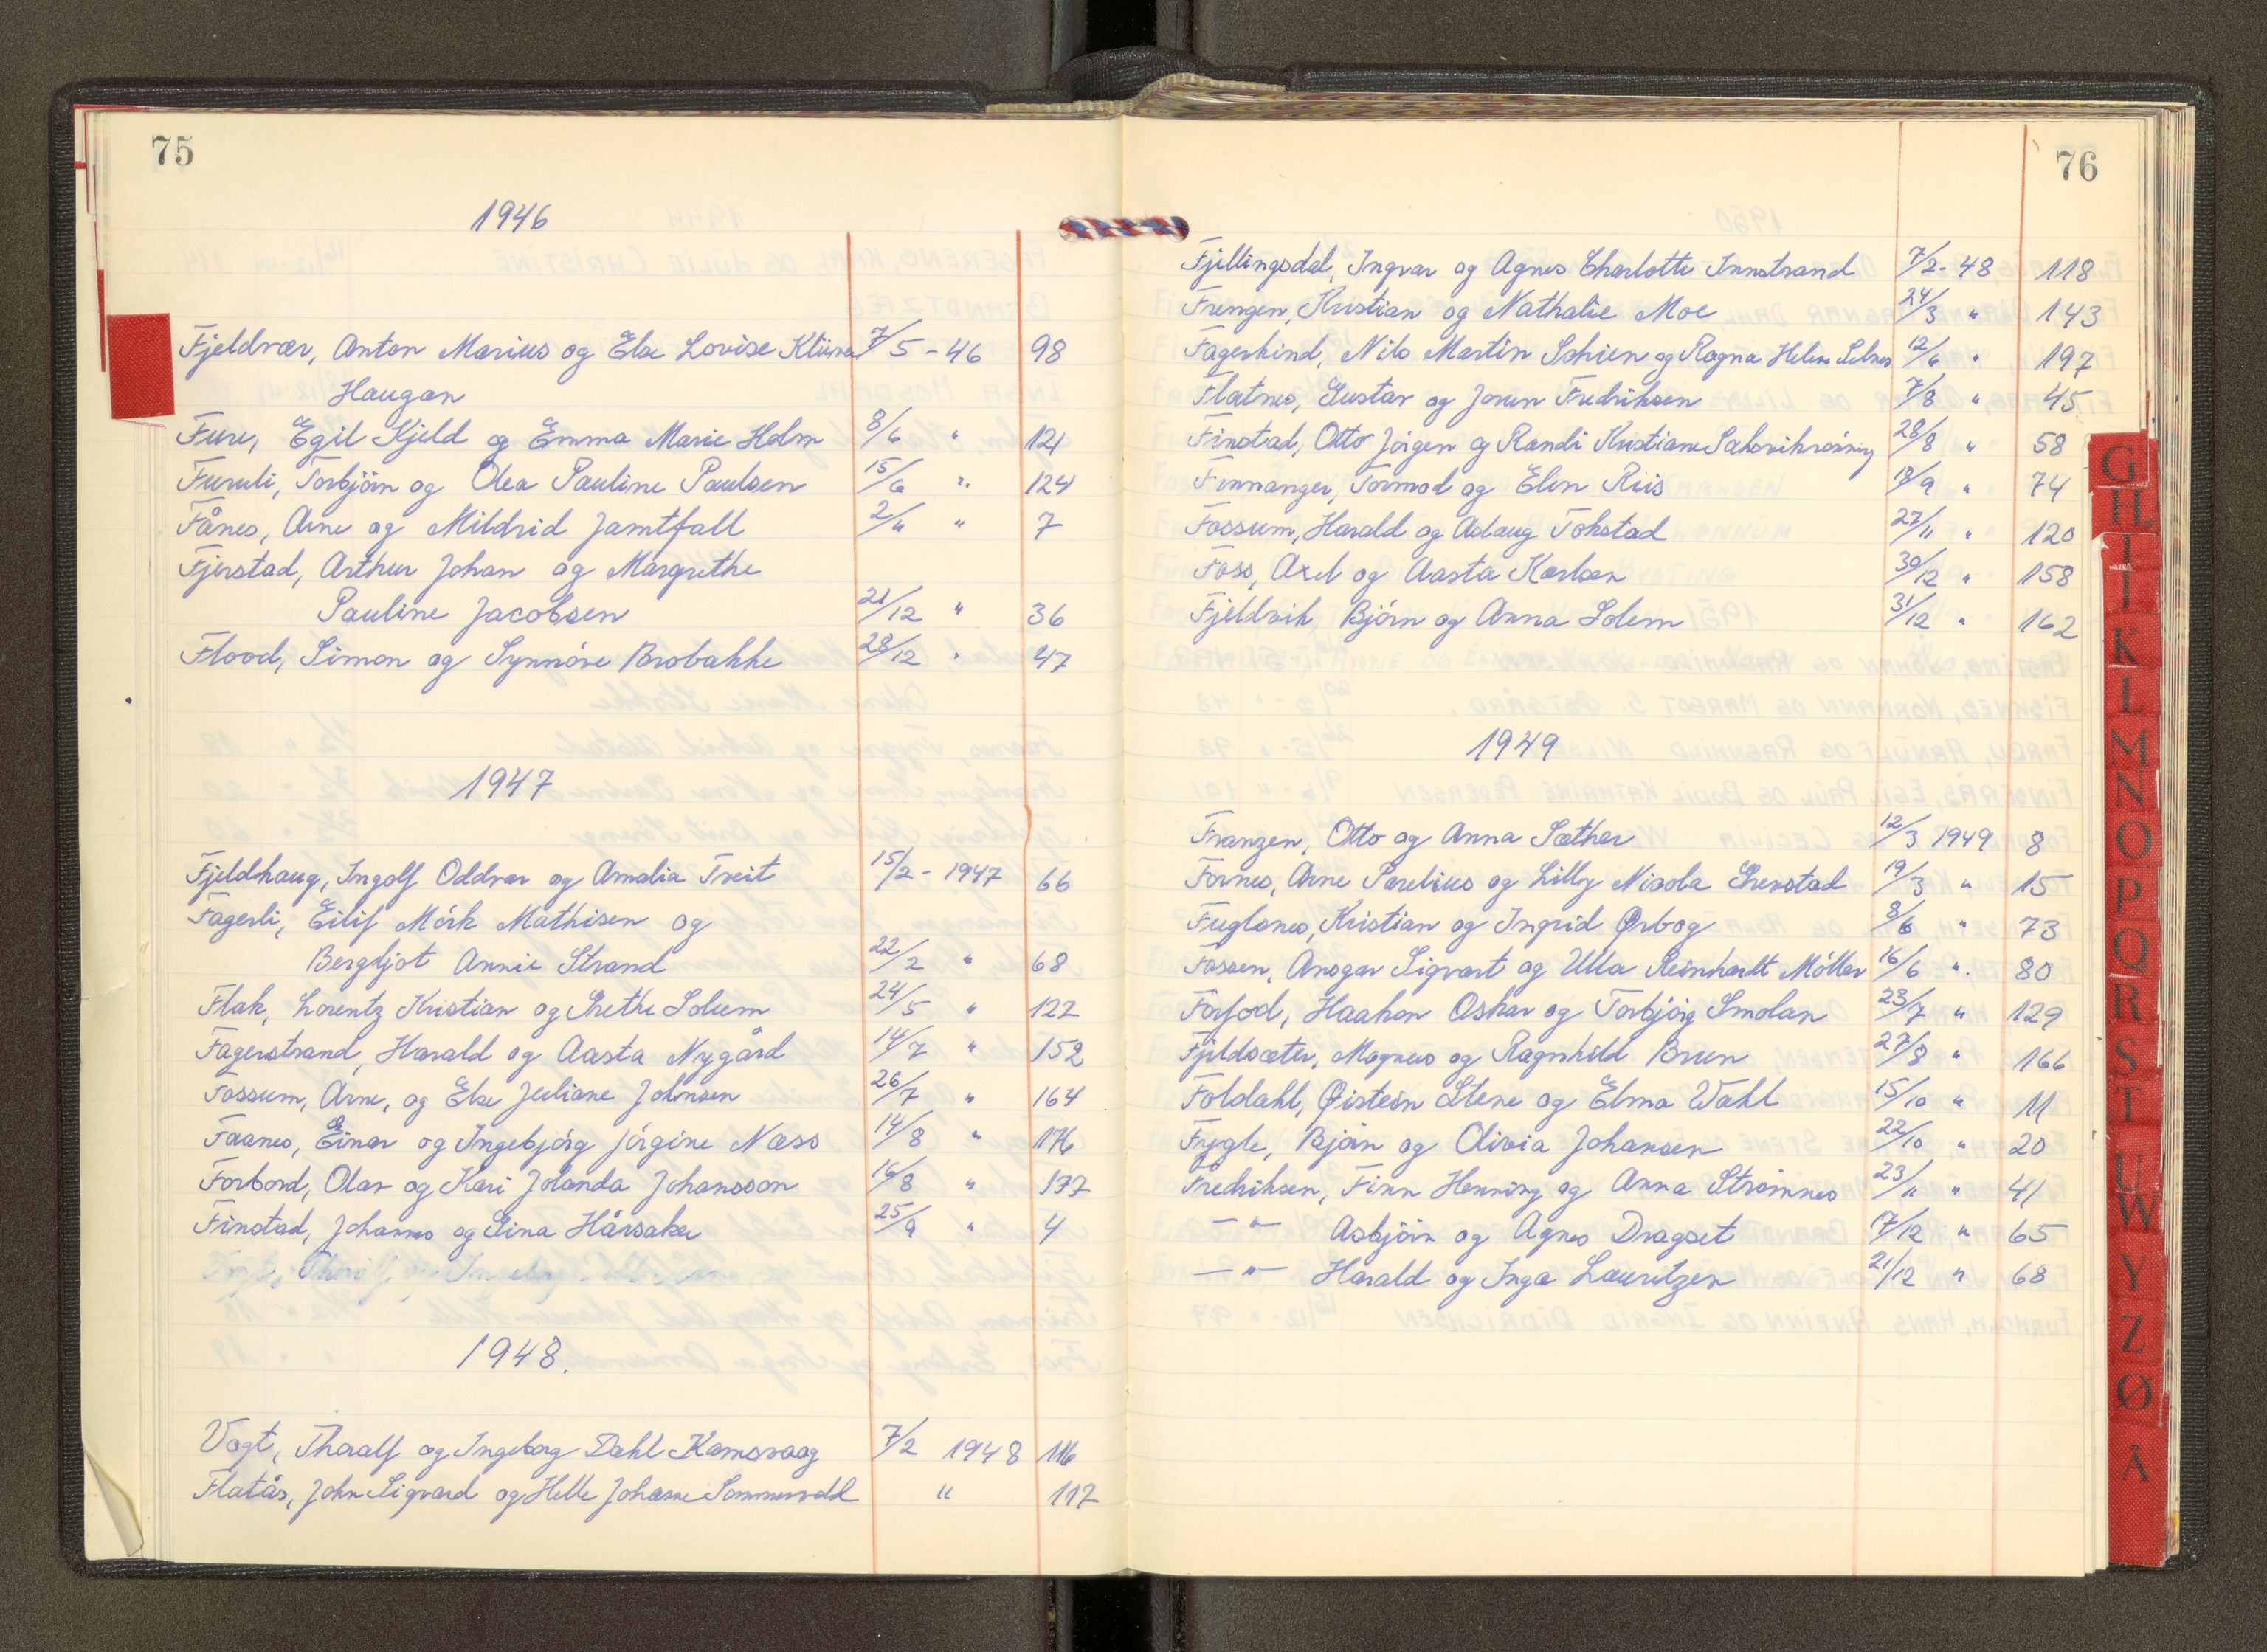 75
1946
Fjeldvær, Anton Marius og Else Lovise Klüver 7/5 - 46 98
Haugan
Fure, Egil Kjeld og Emma Marie Holm 8/6 " 121
Furuli, Torbjörn og Olea Pauline Paulsen 15/6 " 124
Fånes, Arne og Mildrid Jamtfall 2/11 " 7
Fjerstad, Arthur Johan og Margrethe
Pauline Jacobsen 21/12 " 36
Flood, Simon og Synnöve Brobakke 28/12 " 47
1947
Fjeldhaug, Ingolf Oddvar og Amalia Treit 15/2 - 1947 66
Fagerli, Eilif Mörk Mathisen og
Bergljot Annie Strand 22/2 " 68
Flak, Lorentz Kristian og Grethe Solem 24/5 " 122
Fagerstrand, Harald og Aasta Nygård 14/7 " 152
Fossum, Arne, og Else Juliane Johnsen 26/7 " 164
Faanes, Einar og Ingebjörg Jörgine Næss 14/8 " 176
Forbord, Olav og Kari Jolanda Johansson 16/8 " 177
Finstad, Johannes og Gina Hårsaker 25/9 " 4
1948.
Vogt, Thoralf og Ingeborg Dahl Kamsvaag 7/2 1948 116
Flatås, John Sigvard og Helle Johanne Sommervold " 117
76
Fjellingsdal, Ingvar og Agnes Charlotte Innstrand 7/2 - 48 118
Frengen, Kristian og Nathalie Moe 24/3 " 143
Fagerhind, Nils Martin Schien og Ragna Helene Selnes 12/6 " 197
Flatnes, Gustav og Jorun Fredriksen 7/8 " 45
Finstad, Otto Jörgen og Randi Kristiane 28/8 " 58
Finnanger, Tormod og Elen Riis 18/9 " 74
Fossum, Harald og Aslaug Tokstad 27/11 " 120
Foss, Axel og Aasta Karlsen 30/12 " 158
Fjeldvik, Björn og Anna Solem 31/12 " 162
1949
Franzen, Otto og Anna Sæther 12/3 1949 8
Fornes, Arne Parelius og Lilly Nicola Grevstad 19/3 " 15
Fuglsnes, Kristian og Ingrid Ørbog 8/6 " 73
Fossen, Ansgar Sigvart og Ulla Reinhardt Möller 16/6 " 80
Forfod, Haakon Oskar og Torbjörg Smolan 23/7 " 129
Fjeldsæter, Magnus og Ragnhild Brun 27/8 " 166
Foldahl, Øistein Stene og Elma Wahl 15/10 " 11
Frygle, Björn og Olivia Johansen 22/10 " 20
Fredriksen, Finn Henning og Anna Strömnes 23/11 " 41
— " — Asbjörn og Agnes Dragset 17/12 " 65
— " — Harald og Inga Lauritzen 21/12 " 68
G
H
I
K
L
M
N
O
P
Q
R
S
T
U
W
Y
Z
Ø
Å